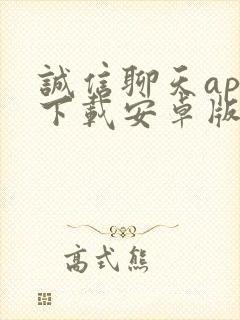 誠信聊天ap
下載安卓版
高式熊